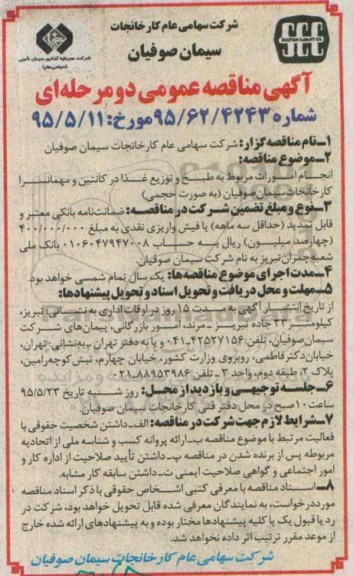 شرکت سهامی عام کارخانجات
سیمان صوفیان
شرکت سرمایه گذاری سیمان تامین
(سهامی عام)
SCC
آگهی مناقصه عمومی دو مرحله‌ای
شماره ۹۵/۶۲/۴۲۴۳ مورخ: ۹۵/۵/۱۱
۱-نام مناقصه گزار: شرکت سهامی عام کارخانجات سیمان صوفیان
۲-موضوع مناقصه:
انجام امورات مربوط به طبخ و توزیع غذا در کانتین و مهمانسرا
کارخانجات سیمان صوفیان (به صورت حجمی)
۳-نوع و مبلغ تضمین شرکت در مناقصه: ضمانت‌نامه بانکی معتبر و
قابل تمدید (حداقل سه ماهه) یا فیش واریزی نقدی به مبلغ ۴۰۰/۰۰۰/۰۰۰
(چهارصد میلیون) ریال به حساب ۰۱۰۶۰۴۷۹۴۷۰۰۸ بانک ملی
شعبه چمران تبریز به نام شرکت سیمان صوفیان.
۴-مدت اجرای موضوع مناقصه‌ها: یک سال تمام شمسی خواهد بود.
۵-مهلت و محل دریافت و تحویل اسناد و تحویل پیشنهادها:
از تاریخ انتشار آگهی به مدت ۱۵ روز در اوقات اداری به نشانی: تبریز،
کیلومتر ۳۳ جاده تبریز - مرند، امور بازرگانی، پیمان‌های شرکت
سیمان صوفیان، تلفن: ۴۲۵۲۷۱۵۶-۰۴۱ و یا به دفتر تهران - به نشانی: تهران،
خیابان دکتر فاطمی، روبروی وزارت کشور، خیابان چهارم، نبش کوچه رامین،
پلاک ۲، طبقه دوم، واحد ۳ - تلفن ۸۸۹۵۳۹۸۶-۰۲۱.
۶-جلسه توجیهی و بازدید از محل: روز شنبه تاریخ ۹۵/۵/۲۳
ساعت ۱۰ صبح در محل دفتر فنی کارخانجات سیمان صوفیان
۷-شرایط لازم جهت شرکت در مناقصه: الف-داشتن شخصیت حقوقی با
فعالیت مرتبط با موضوع مناقصه ب-ارائه پروانه کسب و شناسه ملی از اتحادیه
مربوطه پس از برنده شدن در مناقصه پ-داشتن تأیید صلاحیت از اداره کار و
امور اجتماعی و گواهی صلاحیت ایمنی ت-داشتن سابقه کار مشابه.
۸-اسناد مناقصه با معرفی کتبی اشخاص حقوقی با ذکر اسناد مناقصه
مورد درخواست، به نمایندگان معرفی شده قابل تحویل خواهد بود، شرکت در
رد یا قبول یک یا کلیه پیشنهادها مختار بوده و به پیشنهادهای ارائه شده خارج
از موعد مقرر ترتیب اثر داده نخواهد شد.
شرکت سهامی عام کارخانجات سیمان صوفیان